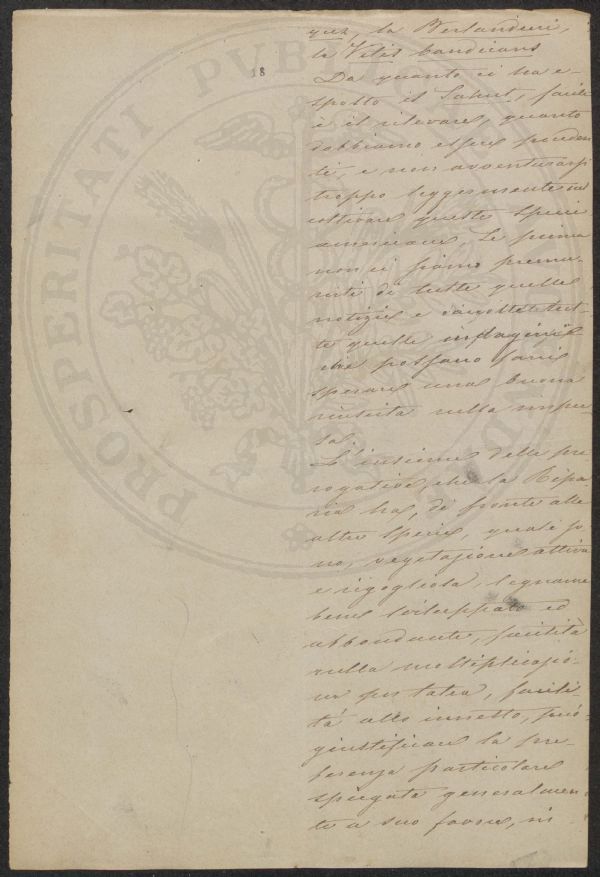 18
PROSPERITATI PUBLICAE
que, la Berlandieri,
la Vitis Candicans
Da quanto ci ha e-
sposto il Sahut, facile
è il rilevare, quanto
dobbiamo essere pruden
ti, e non avventurarsi
troppo leggermente in
coltivare queste specie
americane, se prima
non ci siamo premu-
niti di tutte quelle
notizie e
te quelle
che possano farci
sperare una buona
riuscita nella impre-
sa.
L'insieme delle pre
rogative, che la Ripa
ria ha, di fronte alle
altre specie, quali so
no, vegetazione attiva
e rigogliosa, legname
bene sviluppato ed
abbondante, facilità
nella moltiplicazio-
ne per talea, facili-
tà allo innesto, può
giustificare la pre-
ferenza particolare
spiegata generalmen-
te a suo favore, in